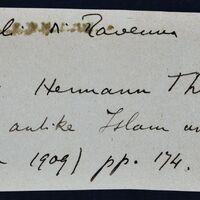 di Ravenna
Hermann Th
antike Islam un
1909) pp. 174.